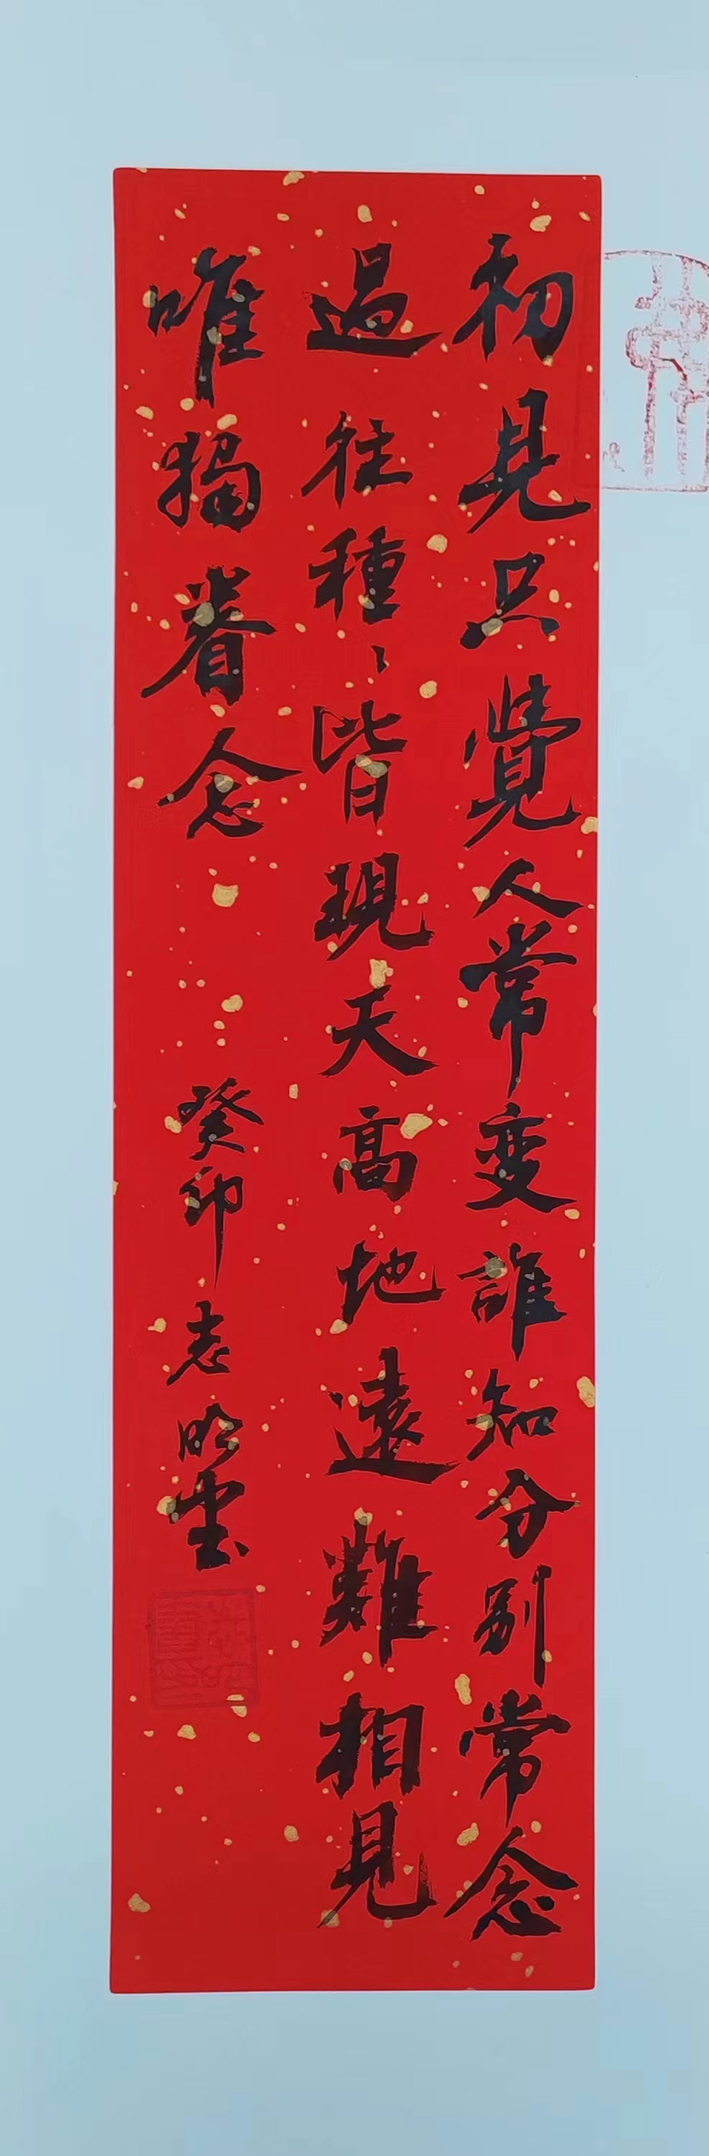 初見只覺人常变誰知分別常念
過往種〻皆現天高地遠難相見
唯獨眷念
癸卯志明書